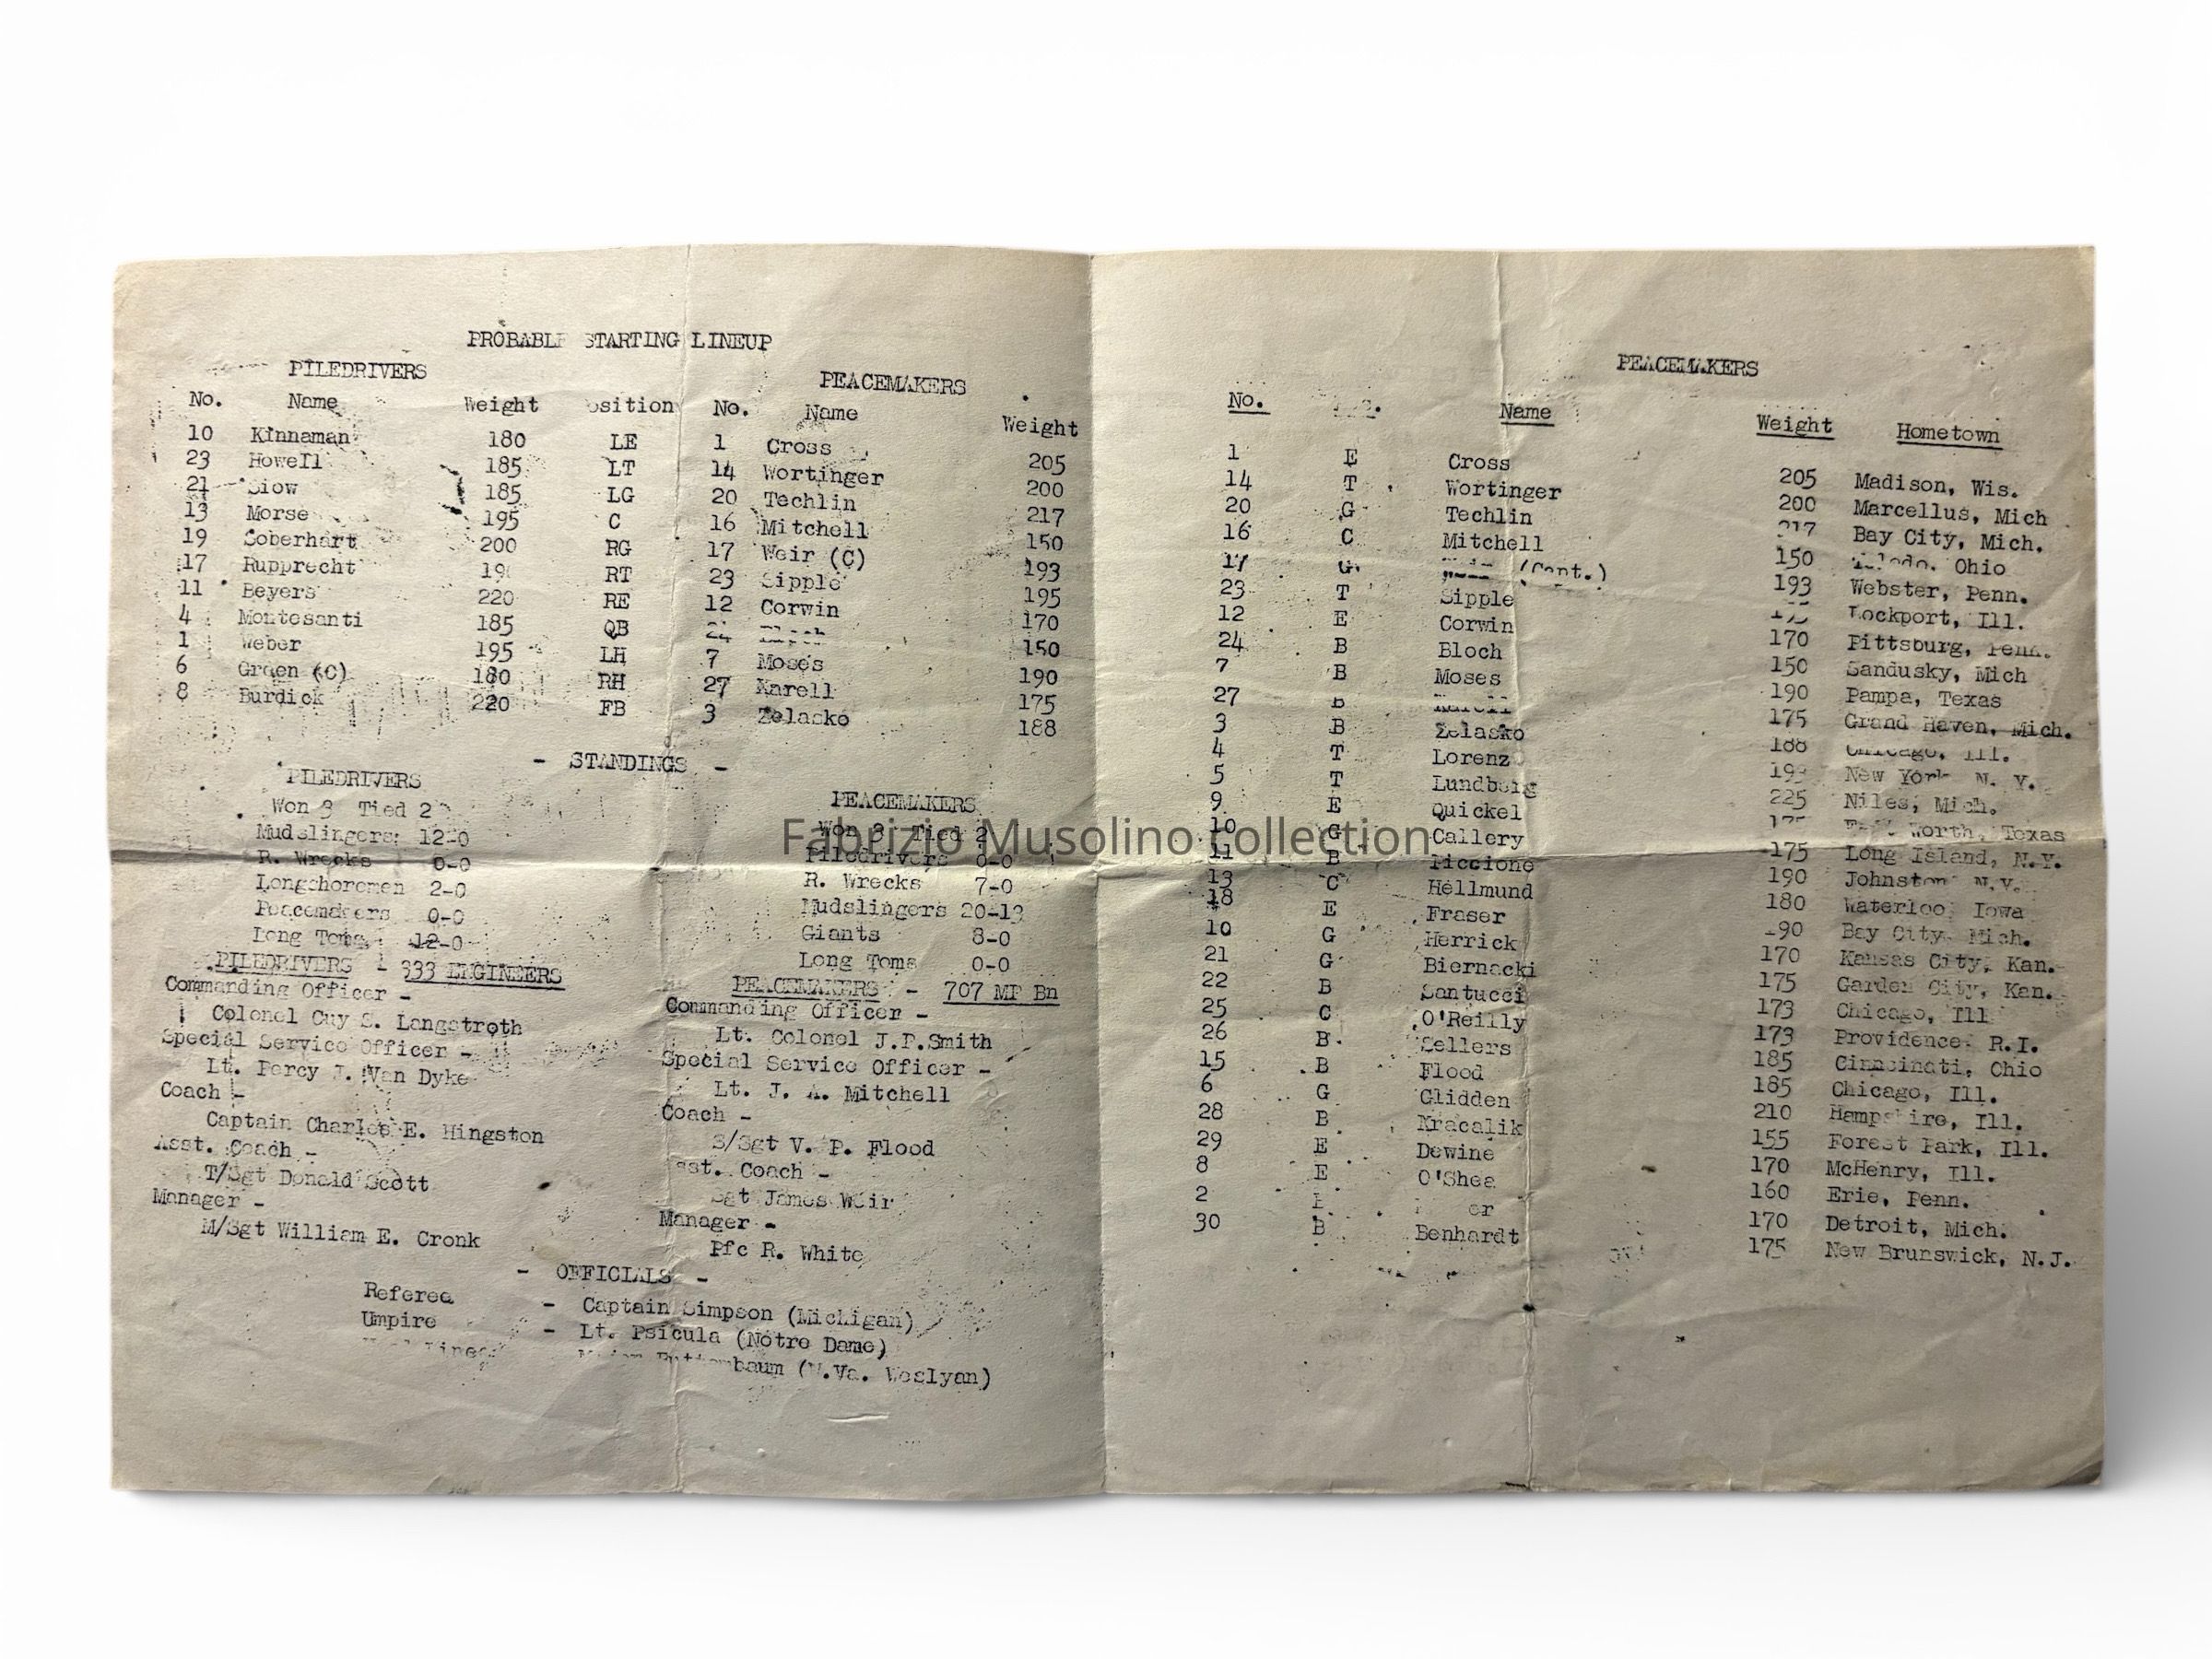 PROBABLE STARTING LINEUP
PILEDRIVERS
PEACEMAKERS
No. Name Weight Position No. Name Weight
10 Kinnaman 180 LE 1 Cross 205
23 Howell 185 LT 14 Wortinger 200
21 185 LG 20 Techlin 217
13 Morse 195 C 16 Mitchell 150
19 Soberhart 200 RG 17 Weir (C) 193
17 Rupprecht RT 23 Sipple 195
11 Beyers 220 RE 12 Corwin 170
4 Montesanti 185 QB 24 150
1 Weber 195 LH 7 Moses 190
6 Green (C) 180 RH 27 Karell 175
8 Burdick 220 FB 3 Zelasko 188
- STANDINGS -
PILEDRIVERS
Won 3 Tied 2
Mudslingers 12-0
R. Wrecks 0-0
Longshoremen 2-0
Peacemakers 0-0
Long Toms 12-0
PILEDRIVERS - 333 ENGINEERS
Commanding Officer -
Colonel Guy S. Langstroth
Special Service Officer -
Lt. Percy J. Van Dyke
Coach -
Captain Charles E. Hingston
Asst. Coach -
T/Sgt Donald Scott
Manager -
M/Sgt William E. Cronk
PEACEMAKERS
Won 3 Tied 2
Piledrivers 0-0
R. Wrecks 7-0
Mudslingers 20-13
Giants 8-0
Long Toms 0-0
PEACEMAKERS - 707 MP Bn
Commanding Officer -
Lt. Colonel J.P.Smith
Special Service Officer -
Lt. J. A. Mitchell
Coach -
S/Sgt V. P. Flood
Asst. Coach -
Sgt James Weir
Manager -
Pfc R. White
- OFFICIALS -
Referee - Captain Simpson (Michigan)
Umpire - Lt. Psicula (Notre Dame)
(W.Va. Weslyan)
PEACEMAKERS
No. Name Weight Hometown
1 E Cross 205 Madison, Wis.
14 T Wortinger 200 Marcellus, Mich
20 G Techlin 217 Bay City, Mich.
16 C Mitchell 150 Toledo, Ohio
17 G (Capt.) 193 Webster, Penn.
23 T Sipple Lockport, Ill.
12 E Corwin 170 Pittsburg, Penn.
24 B Bloch 150 Sandusky, Mich
7 B Moses 190 Pampa, Texas
27 B 175 Grand Haven, Mich.
3 B Zelasko 188 Chicago, Ill.
4 T Lorenz New York N. Y.
5 T Lundberg 225 Niles, Mich.
9 E Quickel Worth, Texas
10 G Callery 175 Long Island, N.Y.
11 B Piccione 190 N.Y.
13 C Hellmund 180 Waterloo Iowa
18 E Fraser Bay City, Mich.
10 G Herrick 170 Kansas City, Kan.
21 G Biernacki 175 Garden City, Kan.
22 B Santucci 173 Chicago, Ill
25 C O'Reilly 173 Providence R.I.
26 B Sellers 185 Cinncinati, Ohio
15 B Flood 185 Chicago, Ill.
6 G Glidden 210 Hampshire, Ill.
28 B Kracalik 155 Forest Park, Ill.
29 E Dewine 170 McHenry, Ill.
8 E O'Shea 160 Erie, Penn.
2 170 Detroit, Mich.
30 B Benhardt 175 New Brunswick, N.J.
Fabrizio Musolino Collection